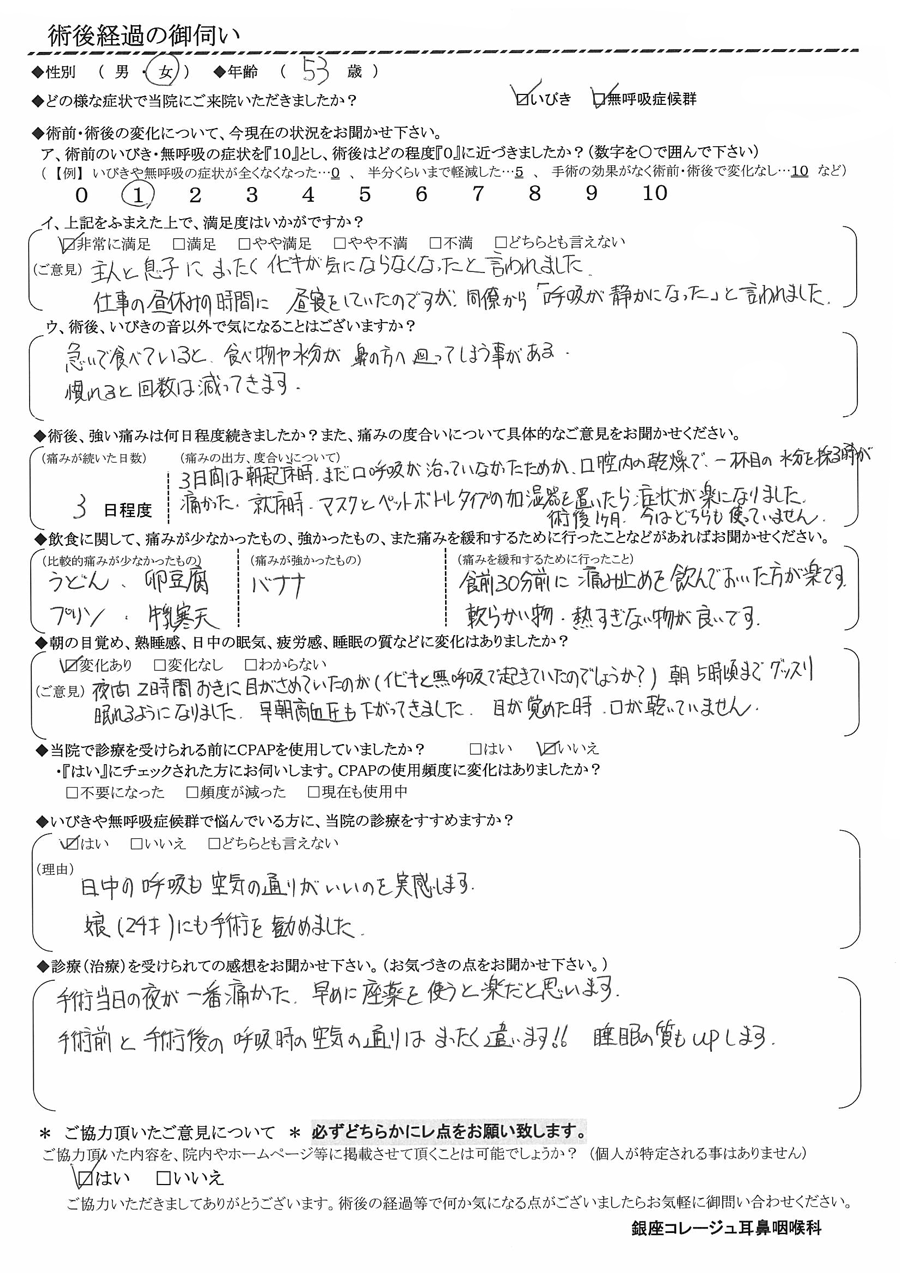 術後経過の御伺い
◆性別 （ 男 ・ 女 ） ◆年齢 （ 53 歳 ）
◆どの様な症状で当院にご来院いただきましたか？ ☑いびき ☑無呼吸症候群
◆術前・術後の変化について、今現在の状況をお聞かせ下さい。
ア、術前のいびき・無呼吸の症状を『10』とし、術後はどの程度『0』に近づきましたか？（数字を〇で囲んで下さい）
（【例】 いびきや無呼吸の症状が全くなくなった…0 、 半分くらいまで軽減した…5 、 手術の効果がなく術前・術後で変化なし…10 など）
0 1 2 3 4 5 6 7 8 9 10
イ、上記をふまえた上で、満足度はいかがですか？
☑非常に満足 □満足 □やや満足 □やや不満 □不満 □どちらとも言えない
（ご意見） 主人と息子に まったく イビキが気にならなくなったと言われました.
仕事の昼休みの時間に 昼寝をしていたのですが、同僚から「呼吸が 静かになった」と言われました.
ウ、術後、いびきの音以外で気になることはございますか？
急いで食べていると、食べ物や水分が 鼻の方へ 廻ってしまう事がある.
慣れると回数は減ってきます.
◆術後、強い痛みは何日程度続きましたか？また、痛みの度合いについて具体的なご意見をお聞かせください。
（痛みが続いた日数） （痛みの出方、度合いについて）
3日間は朝起床時、まだ口呼吸が治っていなかったためか、口腔内の乾燥で、一杯目の 水分を採る時が
3 日程度 痛かった. 就寝時、マスクとペットボトルタイプの加湿器を置いたら 症状が楽になりました.
術後1ヶ月. 今はどちらも使っていません.
◆飲食に関して、痛みが少なかったもの、強かったもの、また痛みを緩和するために行ったことなどがあればお聞かせください。
（比較的痛みが少なかったもの） （痛みが強かったもの） （痛みを緩和するために行ったこと）
うどん 、 卵豆腐 バナナ 食前30分前に 痛み止めを飲んでおいた方が楽です.
プリン 、 牛乳寒天 軟らかい物・熱すぎない物が良いです.
◆朝の目覚め、熟睡感、日中の眠気、疲労感、睡眠の質などに変化はありましたか？
☑変化あり □変化なし □わからない
（ご意見） 夜間 2時間おきに目がさめていたのが（イビキと無呼吸で起きていたのでしょうか？） 朝 5時頃まで グッスリ
眠れるようになりました. 早朝高血圧も下がってきました. 目が覚めた時 口が乾いていません.
◆当院で診療を受けられる前にCPAPを使用していましたか？ □はい ☑いいえ
・『はい』にチェックされた方にお伺いします。CPAPの使用頻度に変化はありましたか？
□不要になった □頻度が減った □現在も使用中
◆いびきや無呼吸症候群で悩んでいる方に、当院の診療をすすめますか？
☑はい □いいえ □どちらとも言えない
（理由）
日中の呼吸も 空気の通りがいいのを実感します.
娘（24才）にも手術を勧めました.
◆診療（治療）を受けられての感想をお聞かせ下さい。（お気づきの点をお聞かせ下さい。）
手術当日の夜が 一番痛かった. 早めに座薬を使うと楽だと思います.
手術前と 手術後の 呼吸時の空気の通りは まったく違います!! 睡眠の質もupします.
＊ ご協力頂いたご意見について ＊ 必ずどちらかにレ点をお願い致します。
ご協力頂いた内容を、院内やホームページ等に掲載させて頂くことは可能でしょうか？ （個人が特定される事はありません）
☑はい □いいえ
ご協力いただきましてありがとうございます。術後の経過等で何か気になる点がございましたらお気軽に御問い合わせください。
銀座コレージュ耳鼻咽喉科